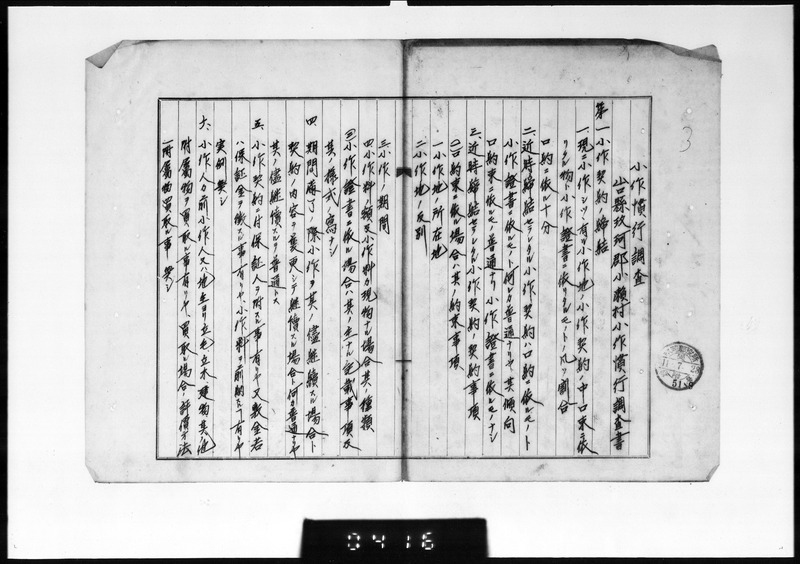 3
小作慣行調査
山口縣玖珂郡小瀬村小作慣行調査書
第一 小作契約ノ締結
一、現ニ小作シツヽ有ル小作地ノ小作契約ノ中口束ニ依
リタル物ト小作證書ニ依リタルモノトノ凡ソ割合
口約ニ依ル十分
二、近時締結セラレタル小作契約ハ口約ニ依ルモノト
小作證書ニ依ルモノト何レカ普通ナリヤ其ノ傾向
口約束ニ依ルモノ普通ナリ 小作證書ニ依ルモノナシ
三、近時締結セラレタル小作契約ノ契約事項
(一)口約束ニ依ル場合ハ其ノ約束事項
一小作地ノ所在地
二小作地ノ反別
三小作ノ期間
四小作料ノ額及小作料カ現物ナル場合其ノ種類
(二)小作證書ニ依ル場合ハ其ノ主ナル記載事項及
其ノ様式ノ寫 ナシ
四 期間満了ノ際小作ヲ其ノ儘継續スル場合ト
契約ノ内容ヲ変更シテ継續スル場合ト何レカ普通ナリヤ
其ノ儘継續スルヲ普通トス
五、小作契約ニ付保証人ヲ附スル事有リヤ又敷金若
ハ保証金ヲ徴スル事有リヤ小作料ノ前納ハ有リヤ
実例 無シ
六、小作人カ前小作人又ハ地主ヨリ立毛立木、建物其他
附属物ヲ買取ル事有リヤ、買取ル場合ノ評價方法
一附属物買取ノ事 無シ
5156
0416